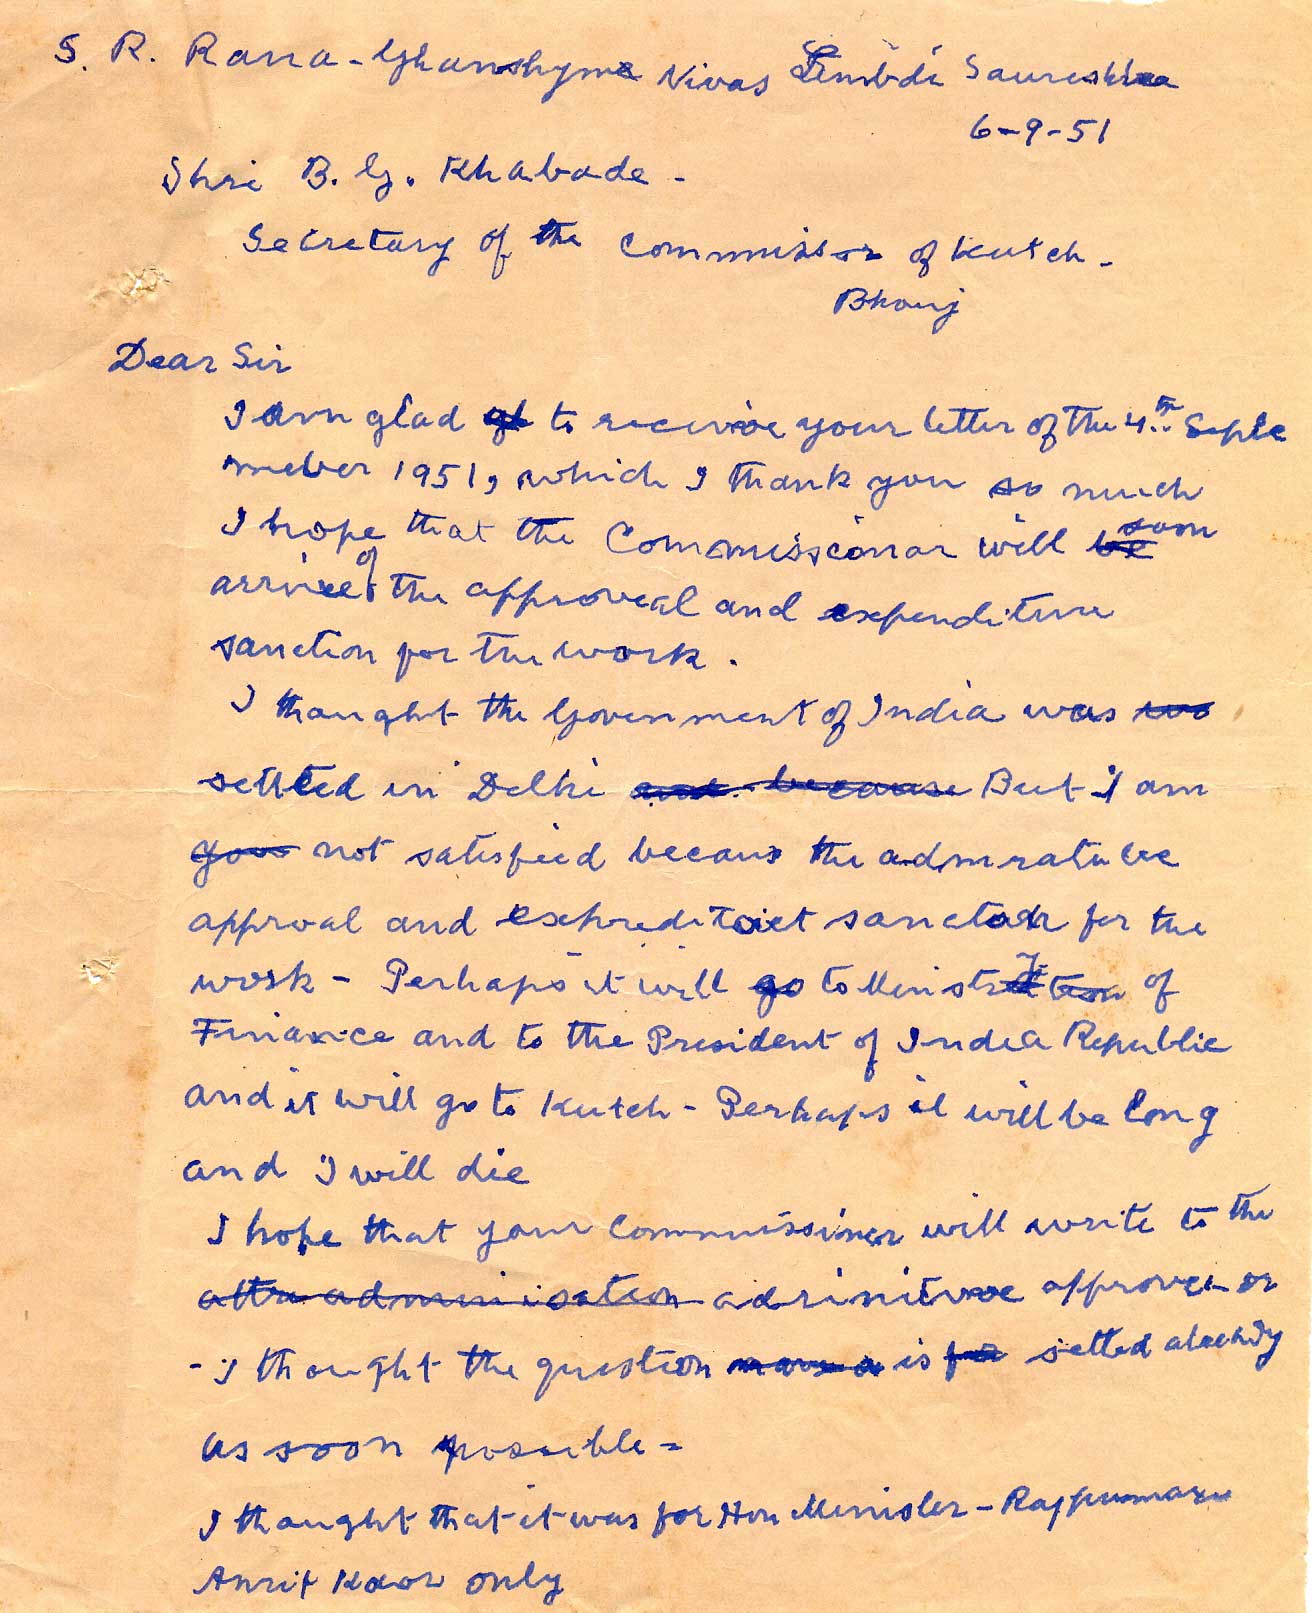 S. R. Rana - Ghanshyma Nivas Limbdi Saurashtra
6-9-51
Shri B. G. Khabade -
Secretary of the Commissor of Kutch -
Bhouj
Dear Sir
I am glad to receive your letter of the 4th Septe
meber 1951, which I thank you so much
I hope that the Commissionar will soon
arrive of the approveal and expenditure
sanction for the work.
I thought the Government of India was
settled in Delhi But I am
not satisfied becaus the admratube
approal and expreditoiet sanction for the
work - Perhaps it will go to Ministry of
Finance and to the President of India Republic
and it will go to Kutch - Perhaps it will be long
and I will die
I hope that your Commissioner will write to the
adrinitvoe approvel or
- I thought the question is setled already
as soon possible =
I thought that it was for Hon Minister - Rajkumari
Amrit Kaor only